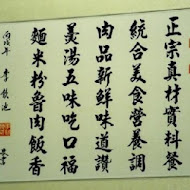 正宗真材實料餐
統合美食營養調
肉品新鮮味道讚
羹湯五味吃口福
麵米粉魯肉飯香
丙戌年 李